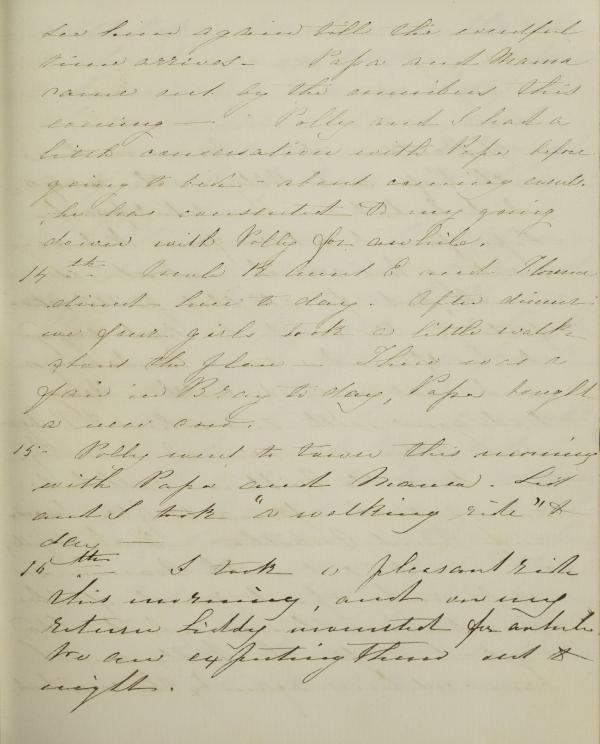 see him again till the eventful
time arrives - Papa and Mama
came out by the omnibus this
evening - Polly and I had a
little conversation with Papa before
going to bed - about coming events.
he has consented to my going
down with Polly for awhile.
14th Uncle R Aunt E and Florence
dined here to day. After dinner
we four girls took a little walk
about the place - There was a
fair in Bray to day, Papa bought
a new cow.
15 - Polly went to town this morning
with Papa and Mama. Liss
and I took "a walking ride" to
day -
16th I took a pleasant ride
this morning, and on my
return Liddy mounted for awhile.
We are expecting them out to
night.